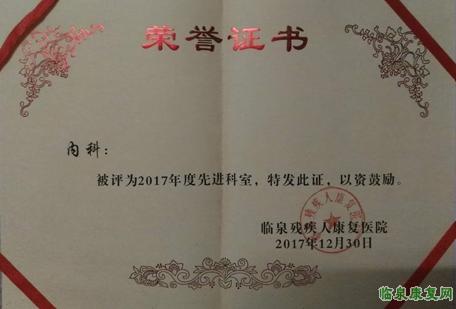 荣誉证书
内科：
被评为2017年度先进科室，特发此证，以资鼓励。
临泉残疾人康复医院
2017年12月30日
临泉康复网